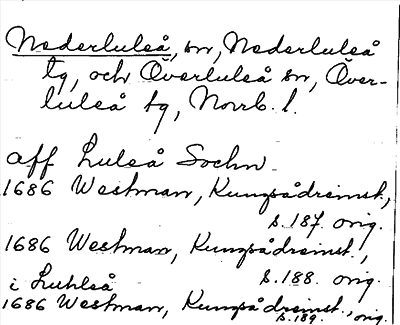 Nederluleå, sn, Nederluleå
tg, och Överluleå sn, Över-
luleå tg, Norrb. l.
aff Luleå Sochn
1686 Westman, Kungsådreinst.,
s. 187. orig.
1686 Westman, Kungsådreinst.,
i Luhleå s. 188. orig.
1686 Westman, Kungsådreinst., orig.
s. 189.